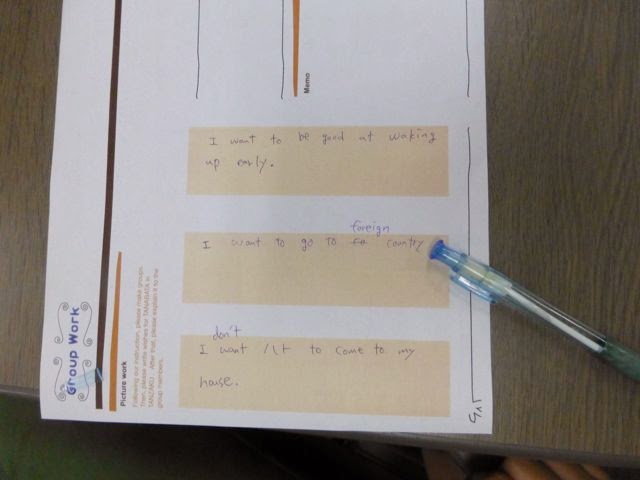 Group Work
Picture work
Following our instruction, please make groups.
Then, please write wishes for TANABATA in
TANZAKU. After that, please explain it to the
group members.
Memo
I want to be good at waking
up early.
foreign
I want to go to country
don't
I want to come to my
house.